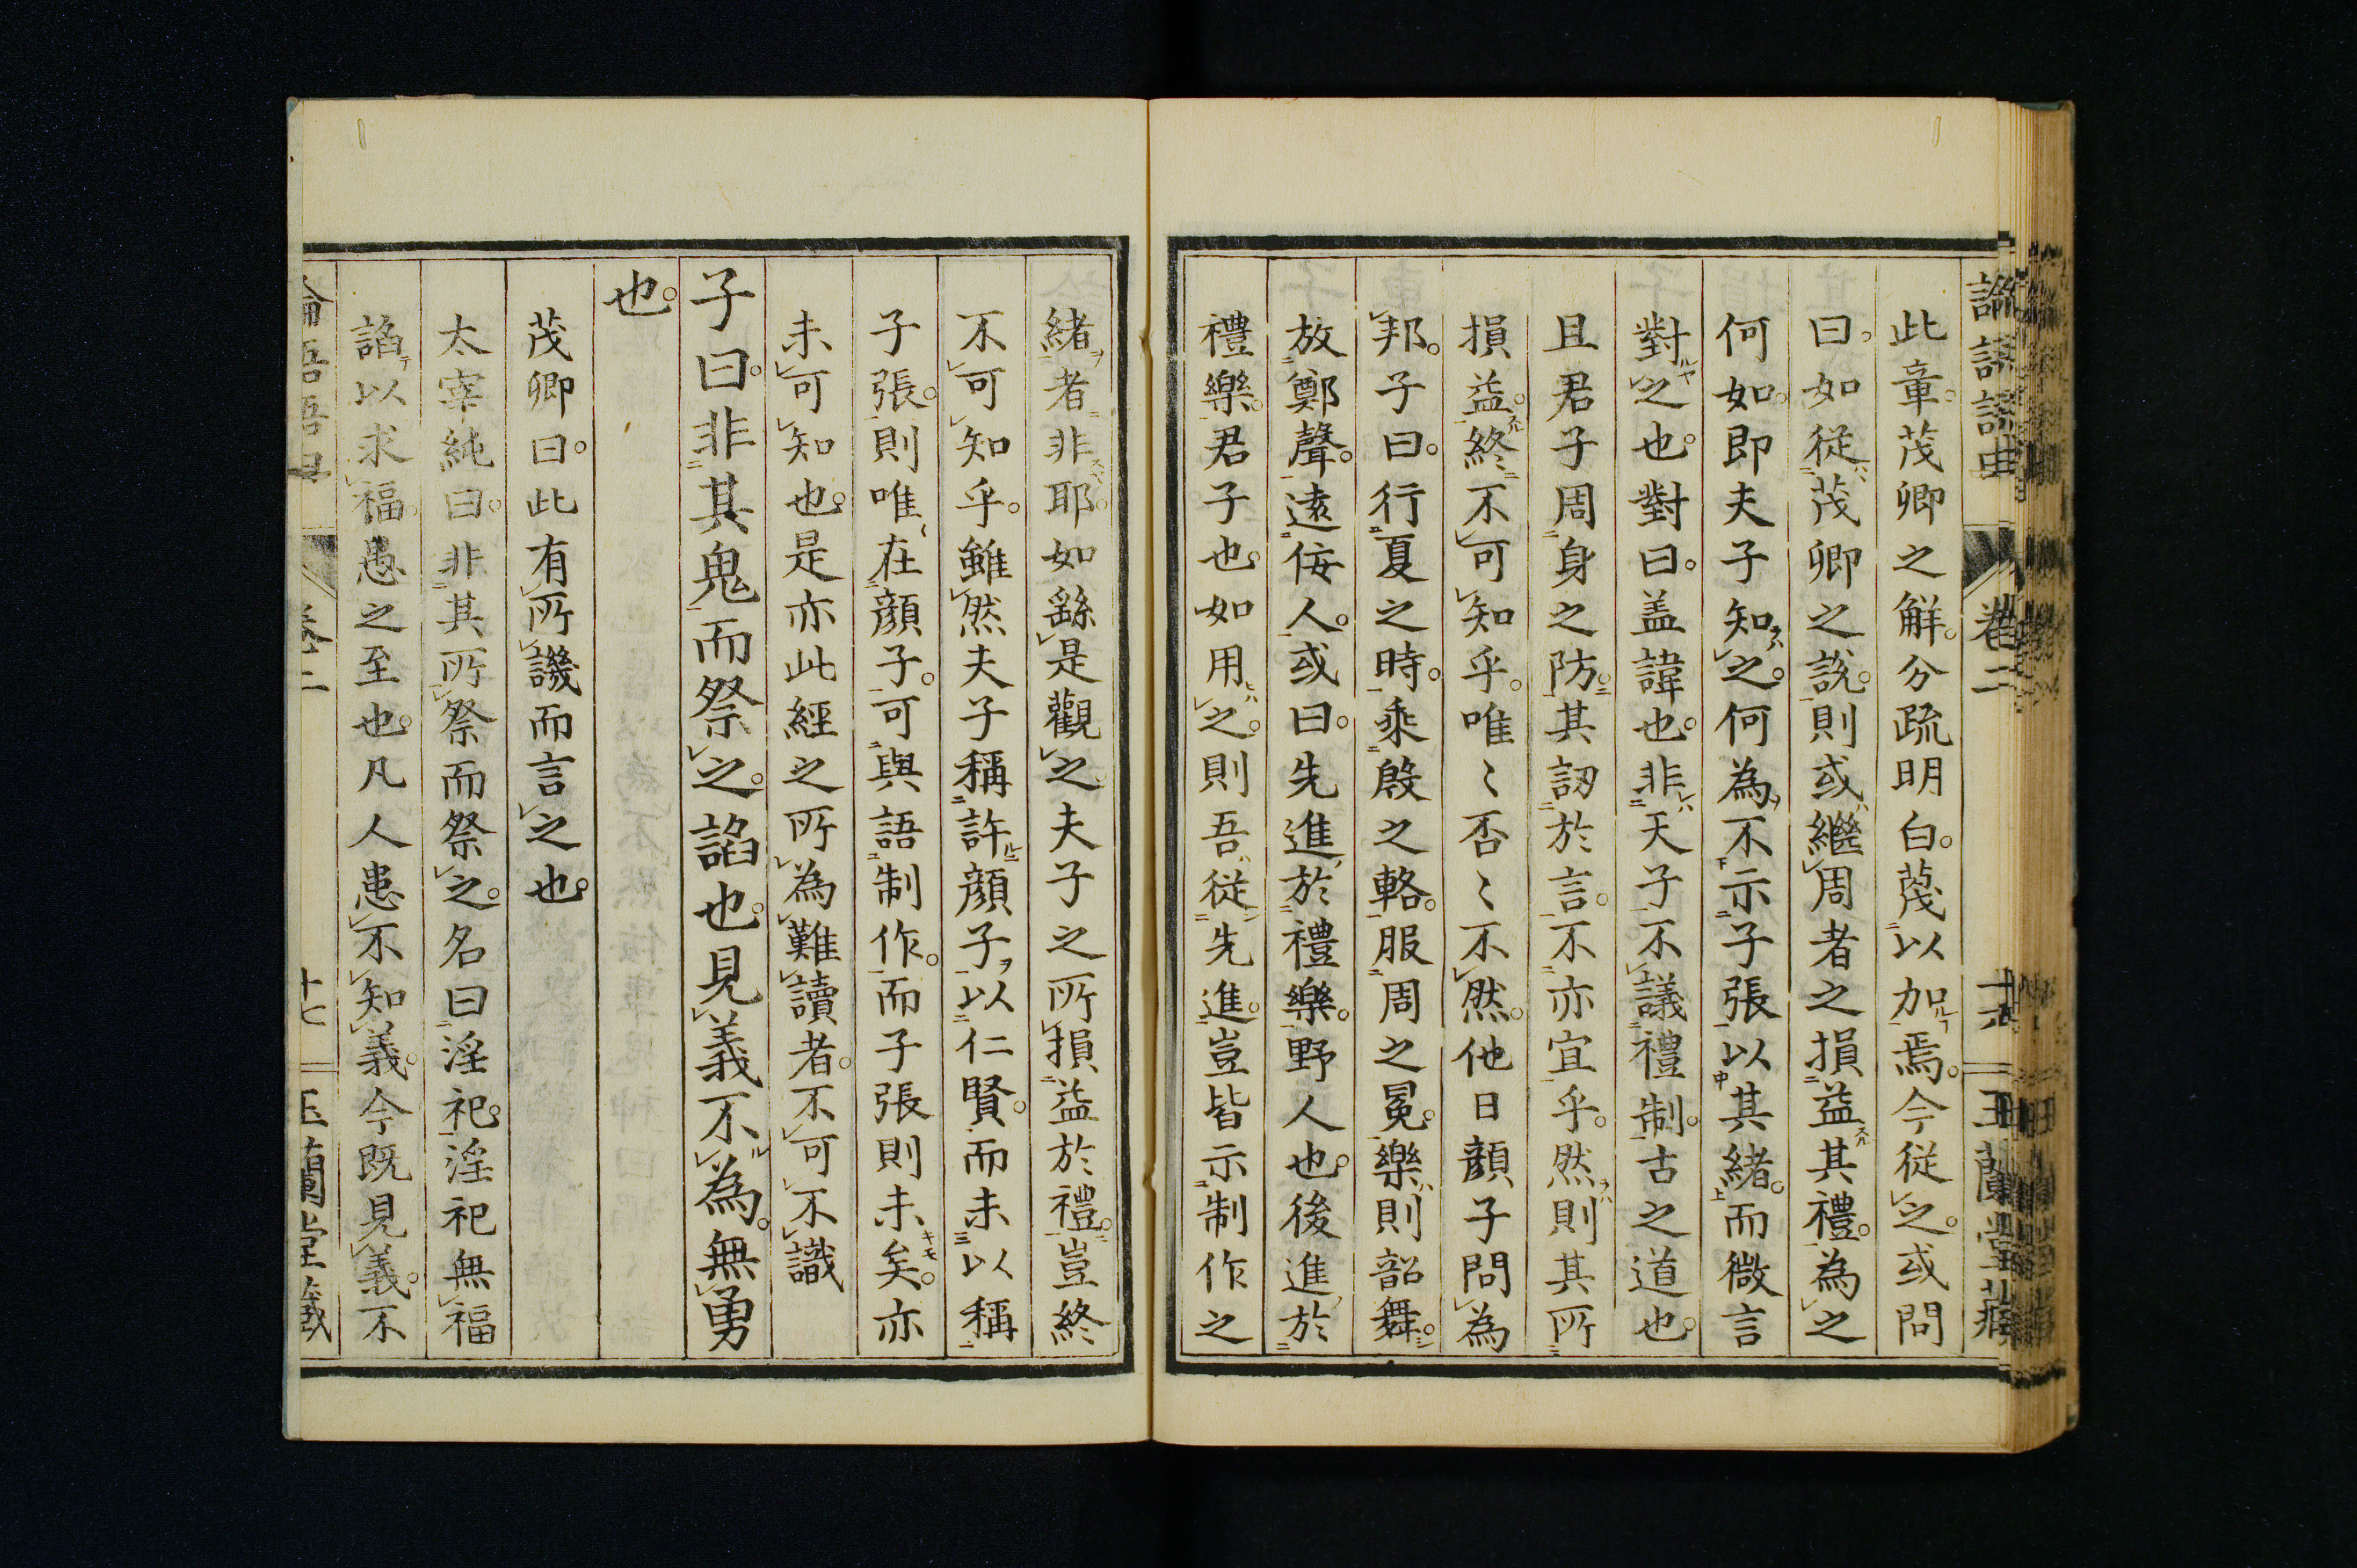 此章茂卿之解。分疏明白。蔑以加焉。今従之。或問
曰。如従茂卿之説。則或繼周者之損益其禮。為之
何如。即夫子知之。何為不示子張以其緒。而微言
對之也。對曰。盖諱也。非天子不議禮制。古之道也。
且君子周身之防。其訒於言。不亦宜乎。然則其所
損益。終不可知乎。唯〻否〻不然。他日顔子問為
邦。子曰。行夏之時。乘殷之輅。服周之冕。樂則韶舞。
放鄭聲。遠佞人。或曰。先進於禮樂。野人也。後進於
禮樂。君子也。如用之。則吾従先進。豈皆示制作之
緒者非耶。如繇是觀之。夫子之所損益於禮。豈終
不可知乎。雖然夫子稱許顔子以仁賢。而未以稱
子張。則唯在顔子。可與語制作。而子張則未矣。亦
未可知也。是亦此經之所為難讀者。不可不識
子曰。非其鬼而祭之。諂也。見義不為。無勇
也。
茂卿曰。此有所譏而言之也。
太宰純曰。非其所祭而祭之。名曰淫祀。淫祀無福
諂以求福。愚之至也。凡人患不知義。今既見義。不
卷二
十七